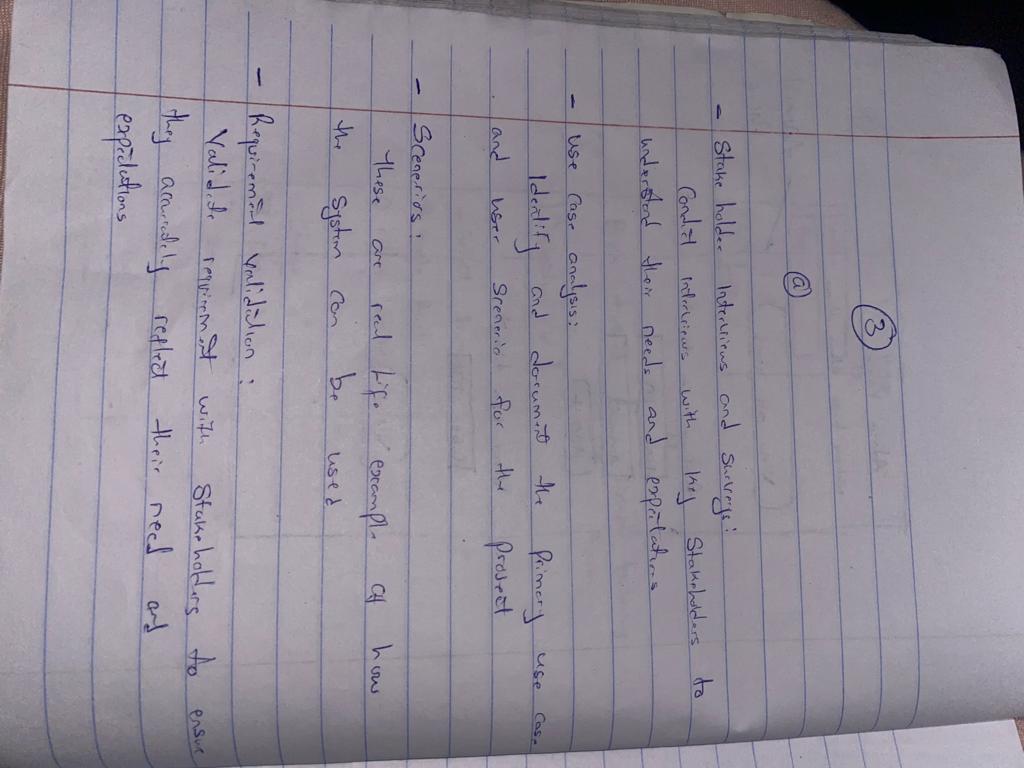 3
a
- Stake holder Interviews and Surveys:
Conduct interviews with key Stakeholders to
understand their needs and expectations
- Use Case analysis:
Identify and document the primary use case
and user Scenerio for the project
- Scenerios:
These are real Life example of how
the System can be used
- Requirement validation:
Validate requirement with Stakeholders to ensure
they accurately reflect their need and
expectations